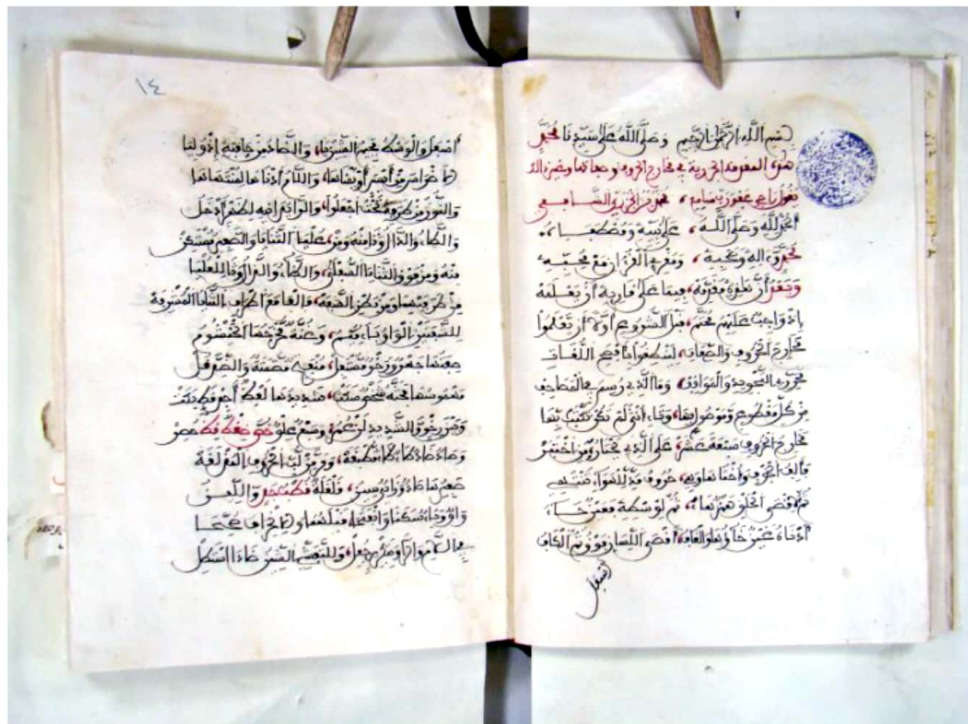 بسم الله الرحمن الرحيم وصلى الله على سيدنا محمد
هذه المقدمة الجزرية في مخارج الحروف وصفاتها
يقول راجي عفو رب سامع محمد بن الجزري الشافعي
الحمد لله وصلى الله على نبيه ومصطفاه
محمد وءاله وصحبه ومقرئ القرءان مع محبه
وبعد إن هذه مقدمة فيما على قارئه أن يعلمه
إذ واجب عليهم محتم قبل الشروع أولا أن يعلموا
مخارج الحروف والصفات لينطقوا بأفصح اللغات
محرري التجويد والمواقف وما الذي رسم في المصاحف
من كل مقطوع وموصول بها وتاء أنثى لم تكن تكتب بها
مخارج الحروف سبعة عشر على الذي يختاره من اختبر
فألف الجوف وأختاها وهي حروف مد للهواء تنتهي
ثم لأقصى الحلق همز هاء ثم لوسطه فعين حاء
أدناه غين خاؤها والقاف أقصى اللسان فوق ثم الكاف
أسفل
١٤
أسفل والوسط فجيم الشين يا والضاد من حافته إذ وليا
لاضراس من أيسر أو يمناها واللام أدناها لمنتهاها
والنون من طرفه تحت اجعلوا والرا يدانيه لظهر أدخل
والطاء والدال وتا منه ومن عليا الثنايا والصفير مستكن
منه ومن فوق الثنايا السفلى والظاء والذال وثا للعليا
من طرفيهما ومن بطن الشفه فالفا مع اطراف الثنايا المشرفه
للشفتين الواو باء ميم وغنة مخرجها الخيشوم
صفاتها جهر ورخو مستفل منفتح مصمتة والضد قل
مهموسها فحثه شخص سكت شديدها لفظ أجد قط بكت
وبين رخو والشديد لن عمر وسبع علو خص ضغط قظ حصر
وصاد ضاد طاء ظاء مطبقه وفر من لب الحروف المذلقه
صفيرها صاد وزاي سين قلقلة قطب جد واللين
واو وياء سكنا وانفتحا قبلهما والانحراف صححا
في اللام والرا وبتكرير جعل وللتفشي الشين ضادا استطل